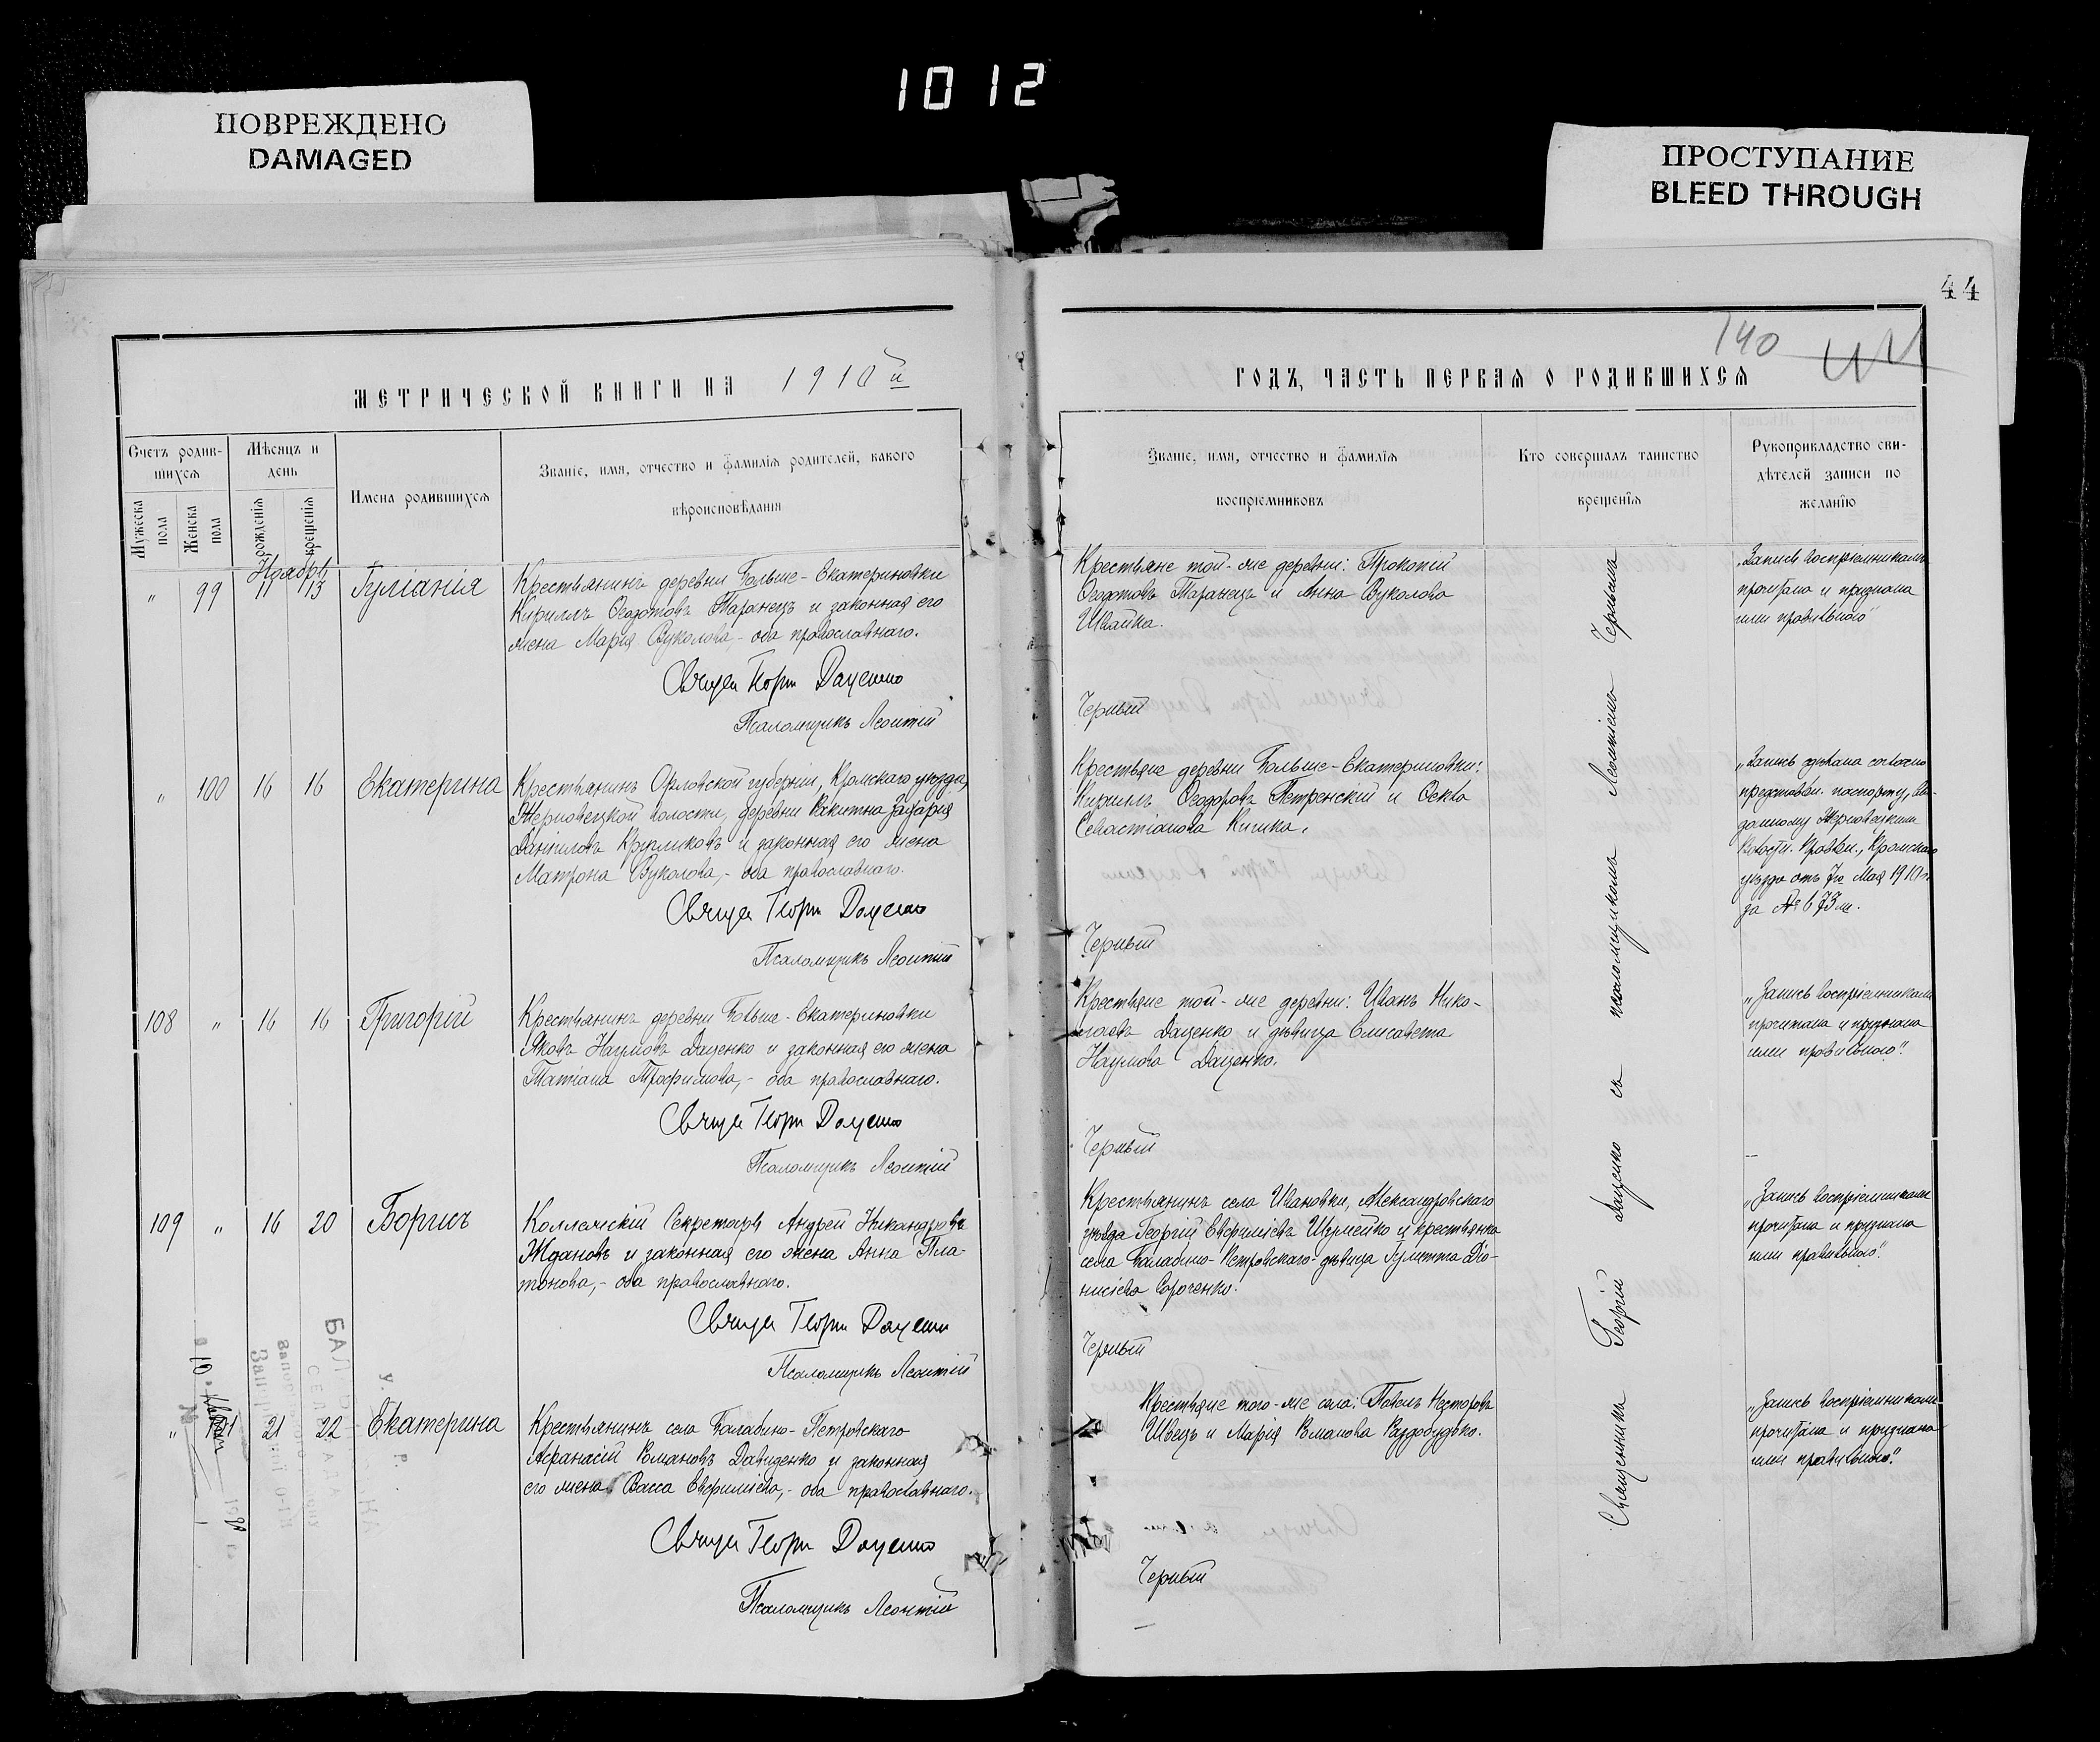 1012
ПОВРЕЖДЕНО
DAMAGED
ПРОСТУПАНИЕ
BLEED THROUGH
44
140
МЕТРИЧЕСКОЙ КНИГИ НА 1910й
Счетъ родив-
шихся
Мужеска
пола
Женска
пола
Мѣсяцъ и
день
рожденія
крещенія
Имена родившихся
Званіе, имя, отчество и фамилія родителей, какого
вѣроисповѣданія
Ноябрь
" 99 11 13 Іуліанія
Крестьянинъ деревни Больше-Екатериновки
Кириллъ Ѳеодотовъ Таранецъ и законная его
жена Марія Вуколова,- оба православнаго.
Священ Георгій Даценко
Псаломщикъ Леонтій
" 100 16 16 Екатерина
Крестьянинъ Орловской губерніи, Кромскаго уѣзда,
Жерновецкой волости, деревни Ракитна Захарія
Даніиловъ Кругликовъ и законная его жена
Матрона Вуколова,- оба православнаго.
Священ Георгій Даценко
Псаломщикъ Леонтій
108 " 16 16 Григорій
Крестьянинъ деревни Больше-Екатериновки
Яковъ Наумовъ Даценко и законная его жена
Татіана Трофимова,- оба православнаго.
Священ Георгій Даценко
Псаломщикъ Леонтій
109 " 16 20 Борисъ
Коллежскій Секретарь Андрей Никандровъ
Ждановъ и законная его жена Анна Пла-
тонова,- оба православнаго.
Священ Георгій Даценко
Псаломщикъ Леонтій
" 101 21 22 Екатерина
Крестьянинъ села Балабино-Петровскаго
Афанасій Романовъ Давиденко и законная
его жена Васса Евфиміева,- оба православнаго.
Священ Георгій Даценко
Псаломщикъ Леонтій
ГОДЪ, ЧАСТЬ ПЕРВАЯ О РОДИВШИХСЯ
Званіе, имя, отчество и фамилія
воспріемниковъ
Кто совершалъ таинство
крещенія
Рукоприкладство сви-
дѣтелей записи по
желанію
Крестьяне той-же деревни: Прокопій
Ѳеодотовъ Таранецъ и Анна Вуколова
Швайка.
Черный
Крестьяне деревни Больше-Екатериновки:
Кириллъ Ѳеодоровъ Петренскій и Ѳекла
Севастіанова Кишка.
Черный
Крестьяне той-же деревни: Иванъ Нико-
лаевъ Даценко и дѣвица Елисавета
Наумова Даценко.
Черный
Крестьянинъ села Ивановки, Александровскаго
уѣзда Георгій Евфиміевъ Шермейко и крестьянка
села Балабино-Петровскаго-дѣвица Іулитта Діо-
нисіева Сороченко.
Черный
Крестьяне того-же села: Павелъ Несторовъ
Швецъ и Марія Романова Раздобудько.
Черный
Священникъ Георгій Даценко съ псаломщикомъ Леонтіемъ Чернымъ
„Запись воспріемникамъ
прочитана и признана
ими правильною"
„Запись сдѣлана согласно
представлен. паспорту, вы-
данному Жерновецкимъ
Волостн. Правлен., Кромскаго
уѣзда отъ 7го Мая 1910 г.
за № 673 м.
„Запись воспріемниками
прочитана и признана
ими правильною".
„Запись воспріемниками
прочитана и признана
ими правильною".
„Запись воспріемниками
прочитана и признана
ими правильною".